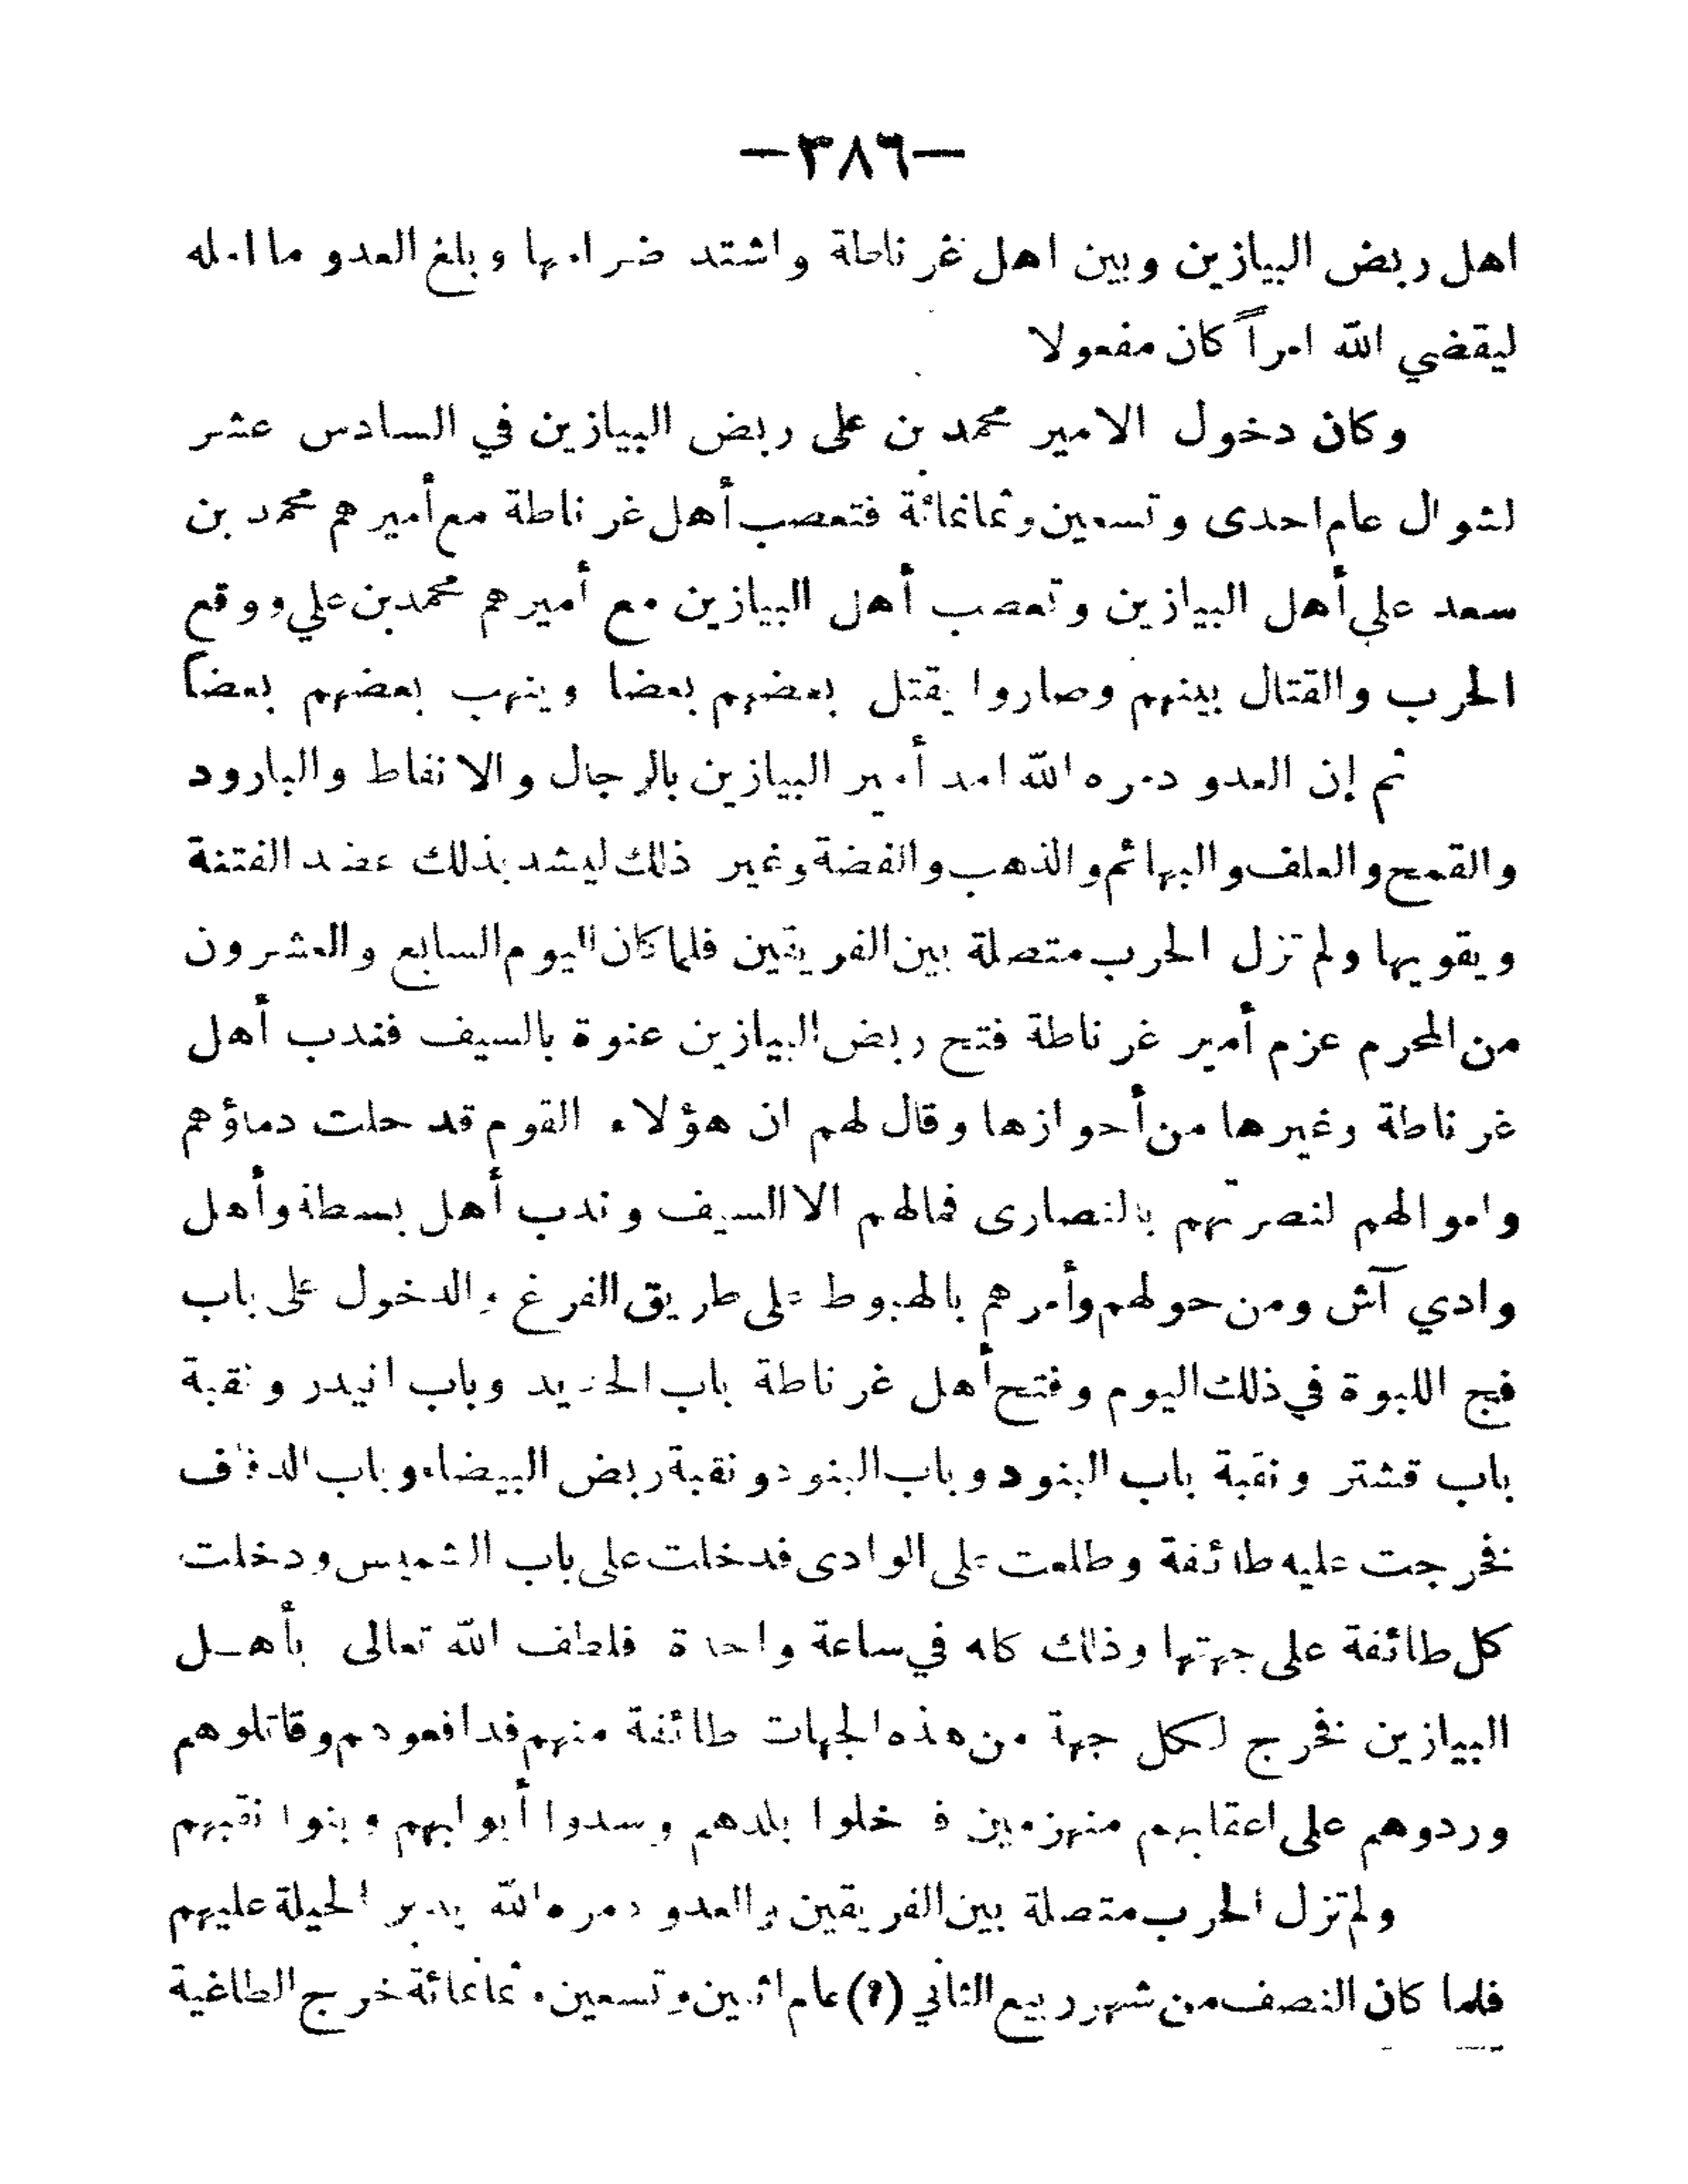 —٣٨٦—
اهل ربض البيازين وبين اهل غرناطة واشتد ضرامها وبلغ العدو ما امله
ليقضي الله امراً كان مفعولا
وكان دخول الامير محمد بن على ربض البيازين في السادس عشر
لشوال عام احدى وتسعين وثمانمائة فتعصب أهل غرناطة مع أميرهم محمد بن
سعد على أهل البيازين وتعصب أهل البيازين مع أميرهم محمد بن علي ووقع
الحرب والقتال بينهم وصاروا يقتل بعضهم بعضا وينهب بعضهم بعضاً
ثم إن العدو دمره الله امد أمير البيازين بالرجال والانفاط والبارود
والقمح والعلف والبهائم والذهب والفضة وغير ذلك ليشد بذلك عضد الفتنة
ويقويها ولم تزل الحرب متصلة بين الفريقين فلما كان اليوم السابع والعشرون
من المحرم عزم أمير غرناطة فتح ربض البيازين عنوة بالسيف فندب أهل
غرناطة وغيرها من أحوازها وقال لهم ان هؤلاء القوم قد حلت دماؤهم
واموالهم لنصرتهم بالنصارى فمالهم الا السيف وندب أهل بسطة وأهل
وادي آش ومن حولهم وأمرهم بالهبوط على طريق الفرغ والدخول على باب
فج اللبوة في ذلك اليوم وفتح أهل غرناطة باب الحديد وباب انيدر ونقبة
باب قشتر ونقبة باب البنود وباب البنود ونقبة ربض البيضاء وباب الدفاف
فخرجت عليه طائفة وطلعت على الوادى فدخلت على باب الشميس ودخلت
كل طائفة على جهتها وذلك كله في ساعة واحدة فلطف الله تعالى بأهل
البيازين فخرج لكل جهة من هذه الجهات طائفة منهم فدافعوهم وقاتلوهم
وردوهم على اعقابهم منهزمين فدخلوا بلدهم وسدوا أبوابهم وبنوا نقبهم
ولم تزل الحرب متصلة بين الفريقين والعدو دمره الله يدبر الحيلة عليهم
فلما كان النصف من شهر ربيع الثاني (؟) عام اثنين وتسعين وثمانمائة خرج الطاغية